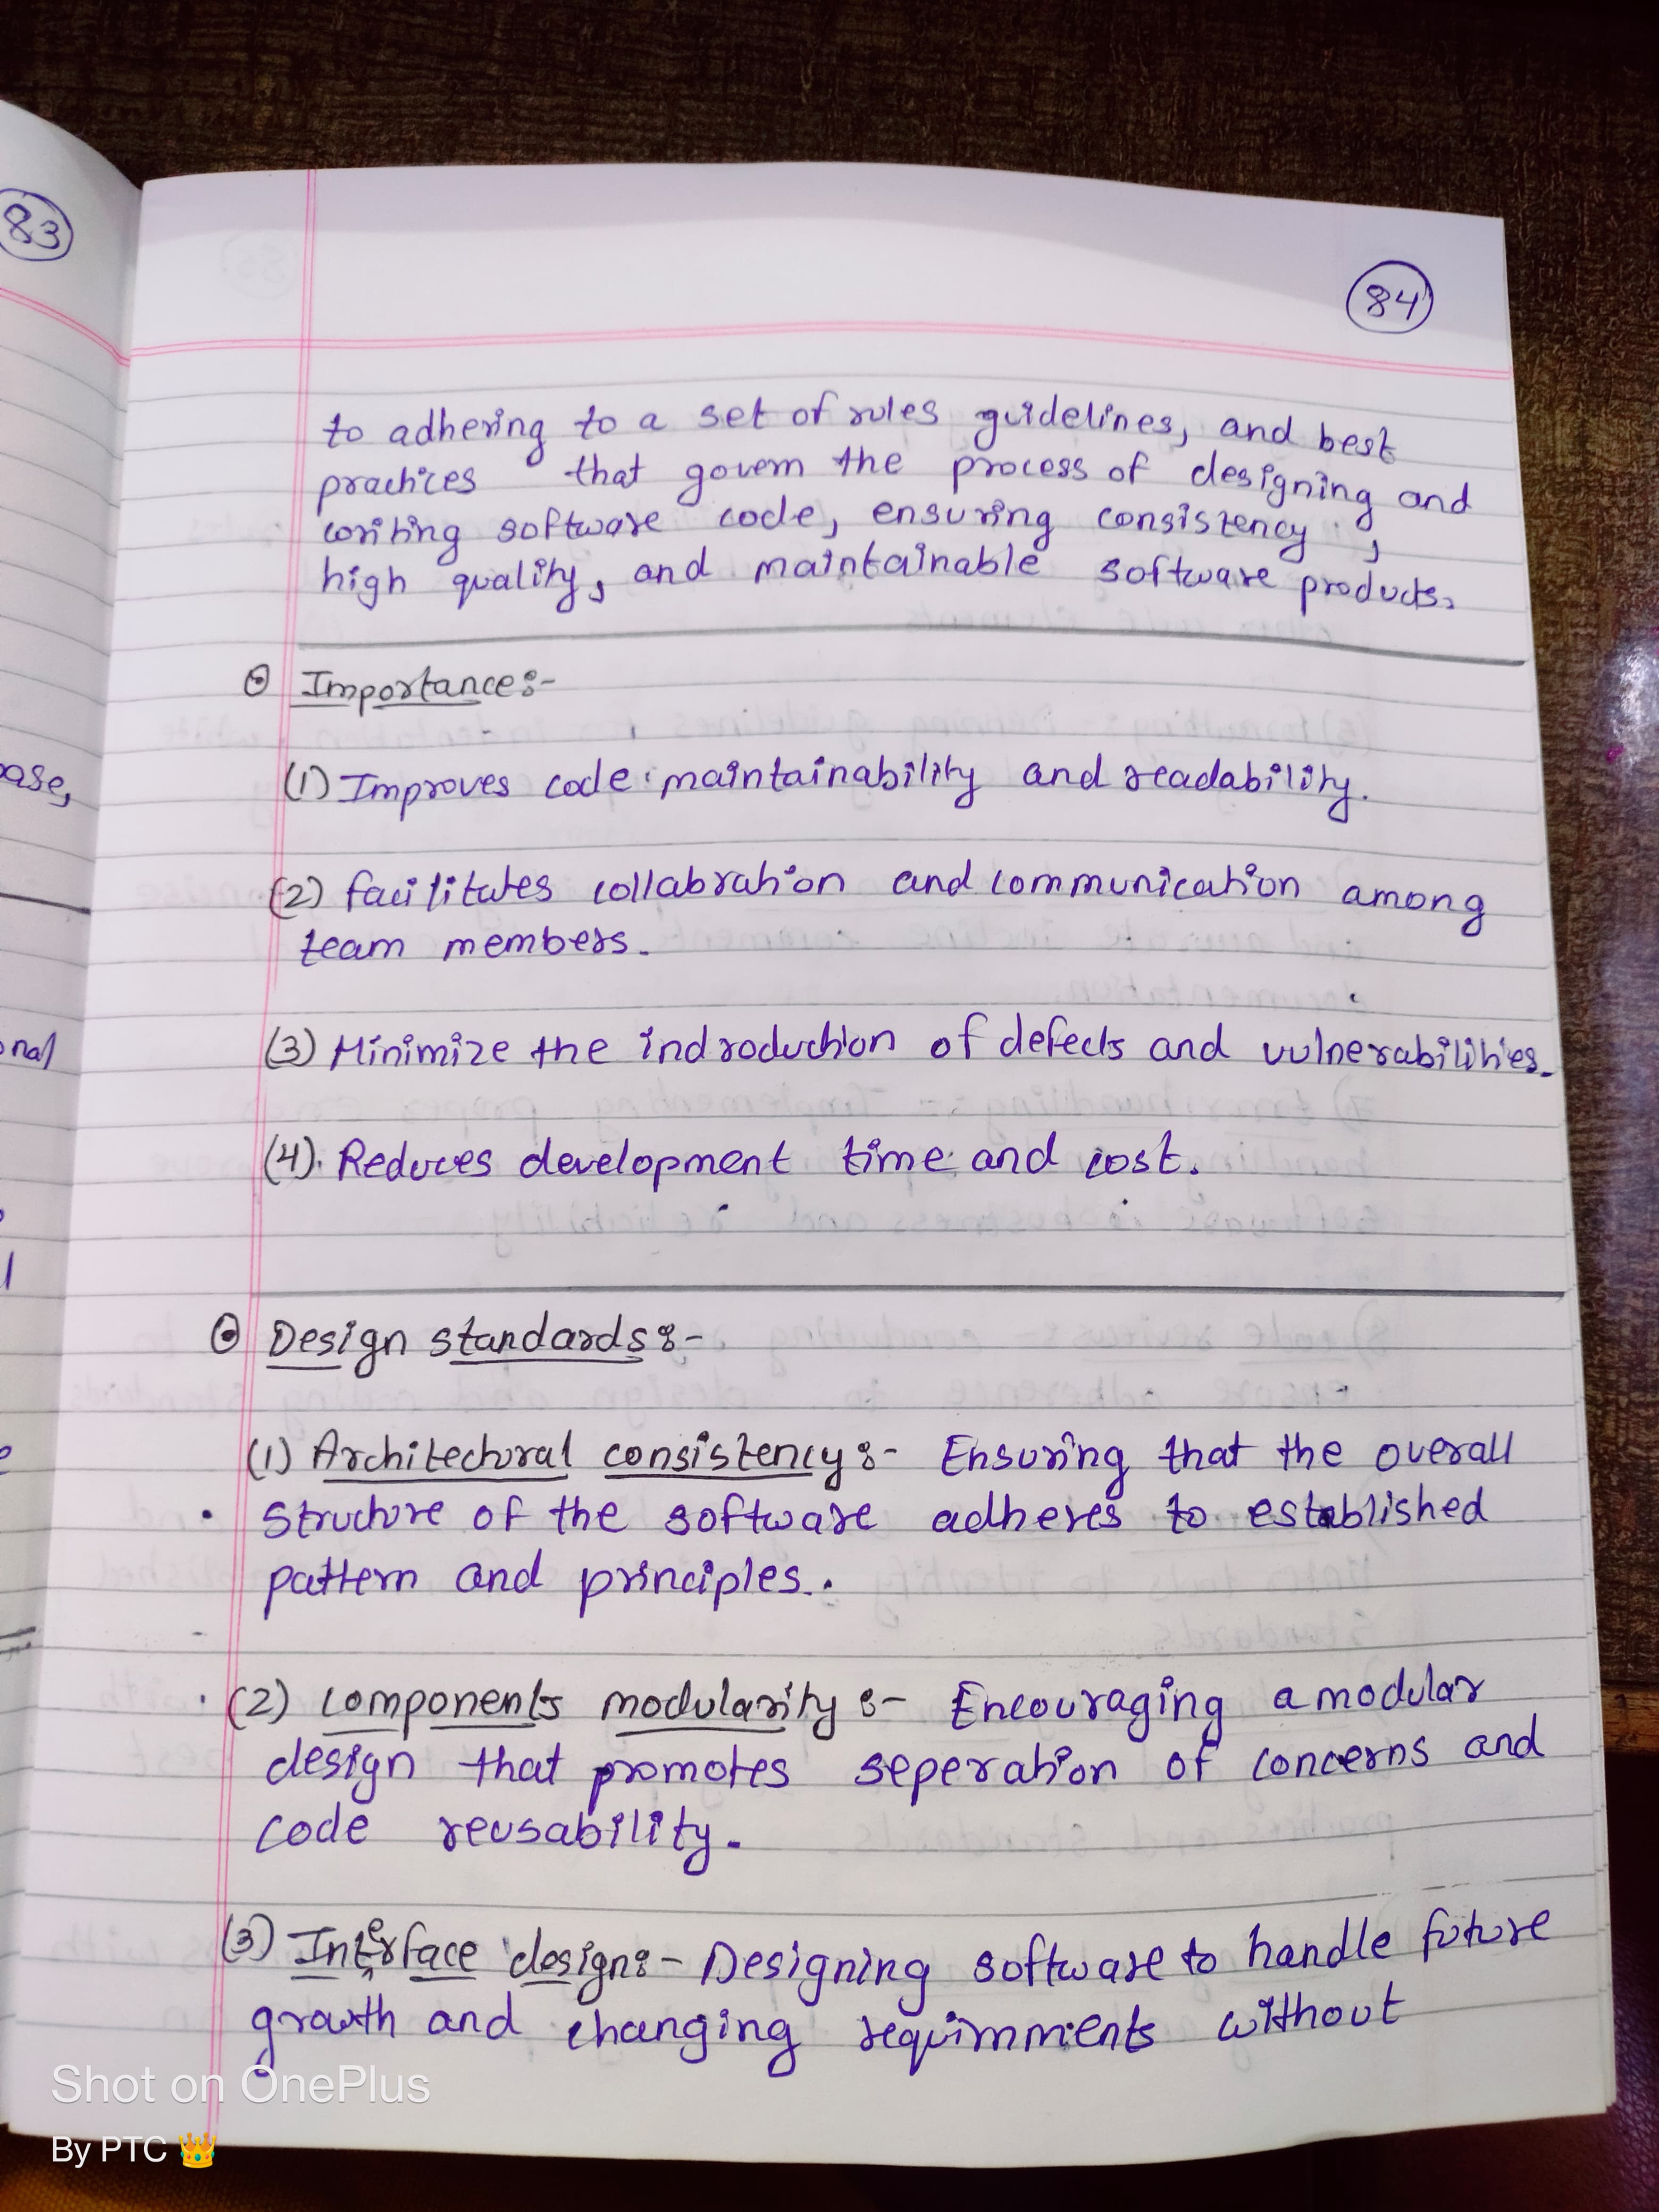 83
84
to adhering to a set of rules guidelines, and best
practices that govern the process of designing and
writing software code, ensuring consistency,
high quality, and maintainable software products.
Importance:-
(1) Improves code maintainability and readability.
(2) facilitates collabration and communication among
team members.
(3) Minimize the indroduction of defects and vulnerabilities.
(4). Reduces development time and cost.
Design standards:-
(1) Architectural consistency:- Ensuring that the overall
structure of the software adheres to established
pattern and principles.
(2) components modularity:- Encouraging a modular
design that promotes seperation of concerns and
code reusability.
(3) Interface design:- Designing software to handle future
growth and changing requirnments without
Shot on OnePlus
By PTC 👑